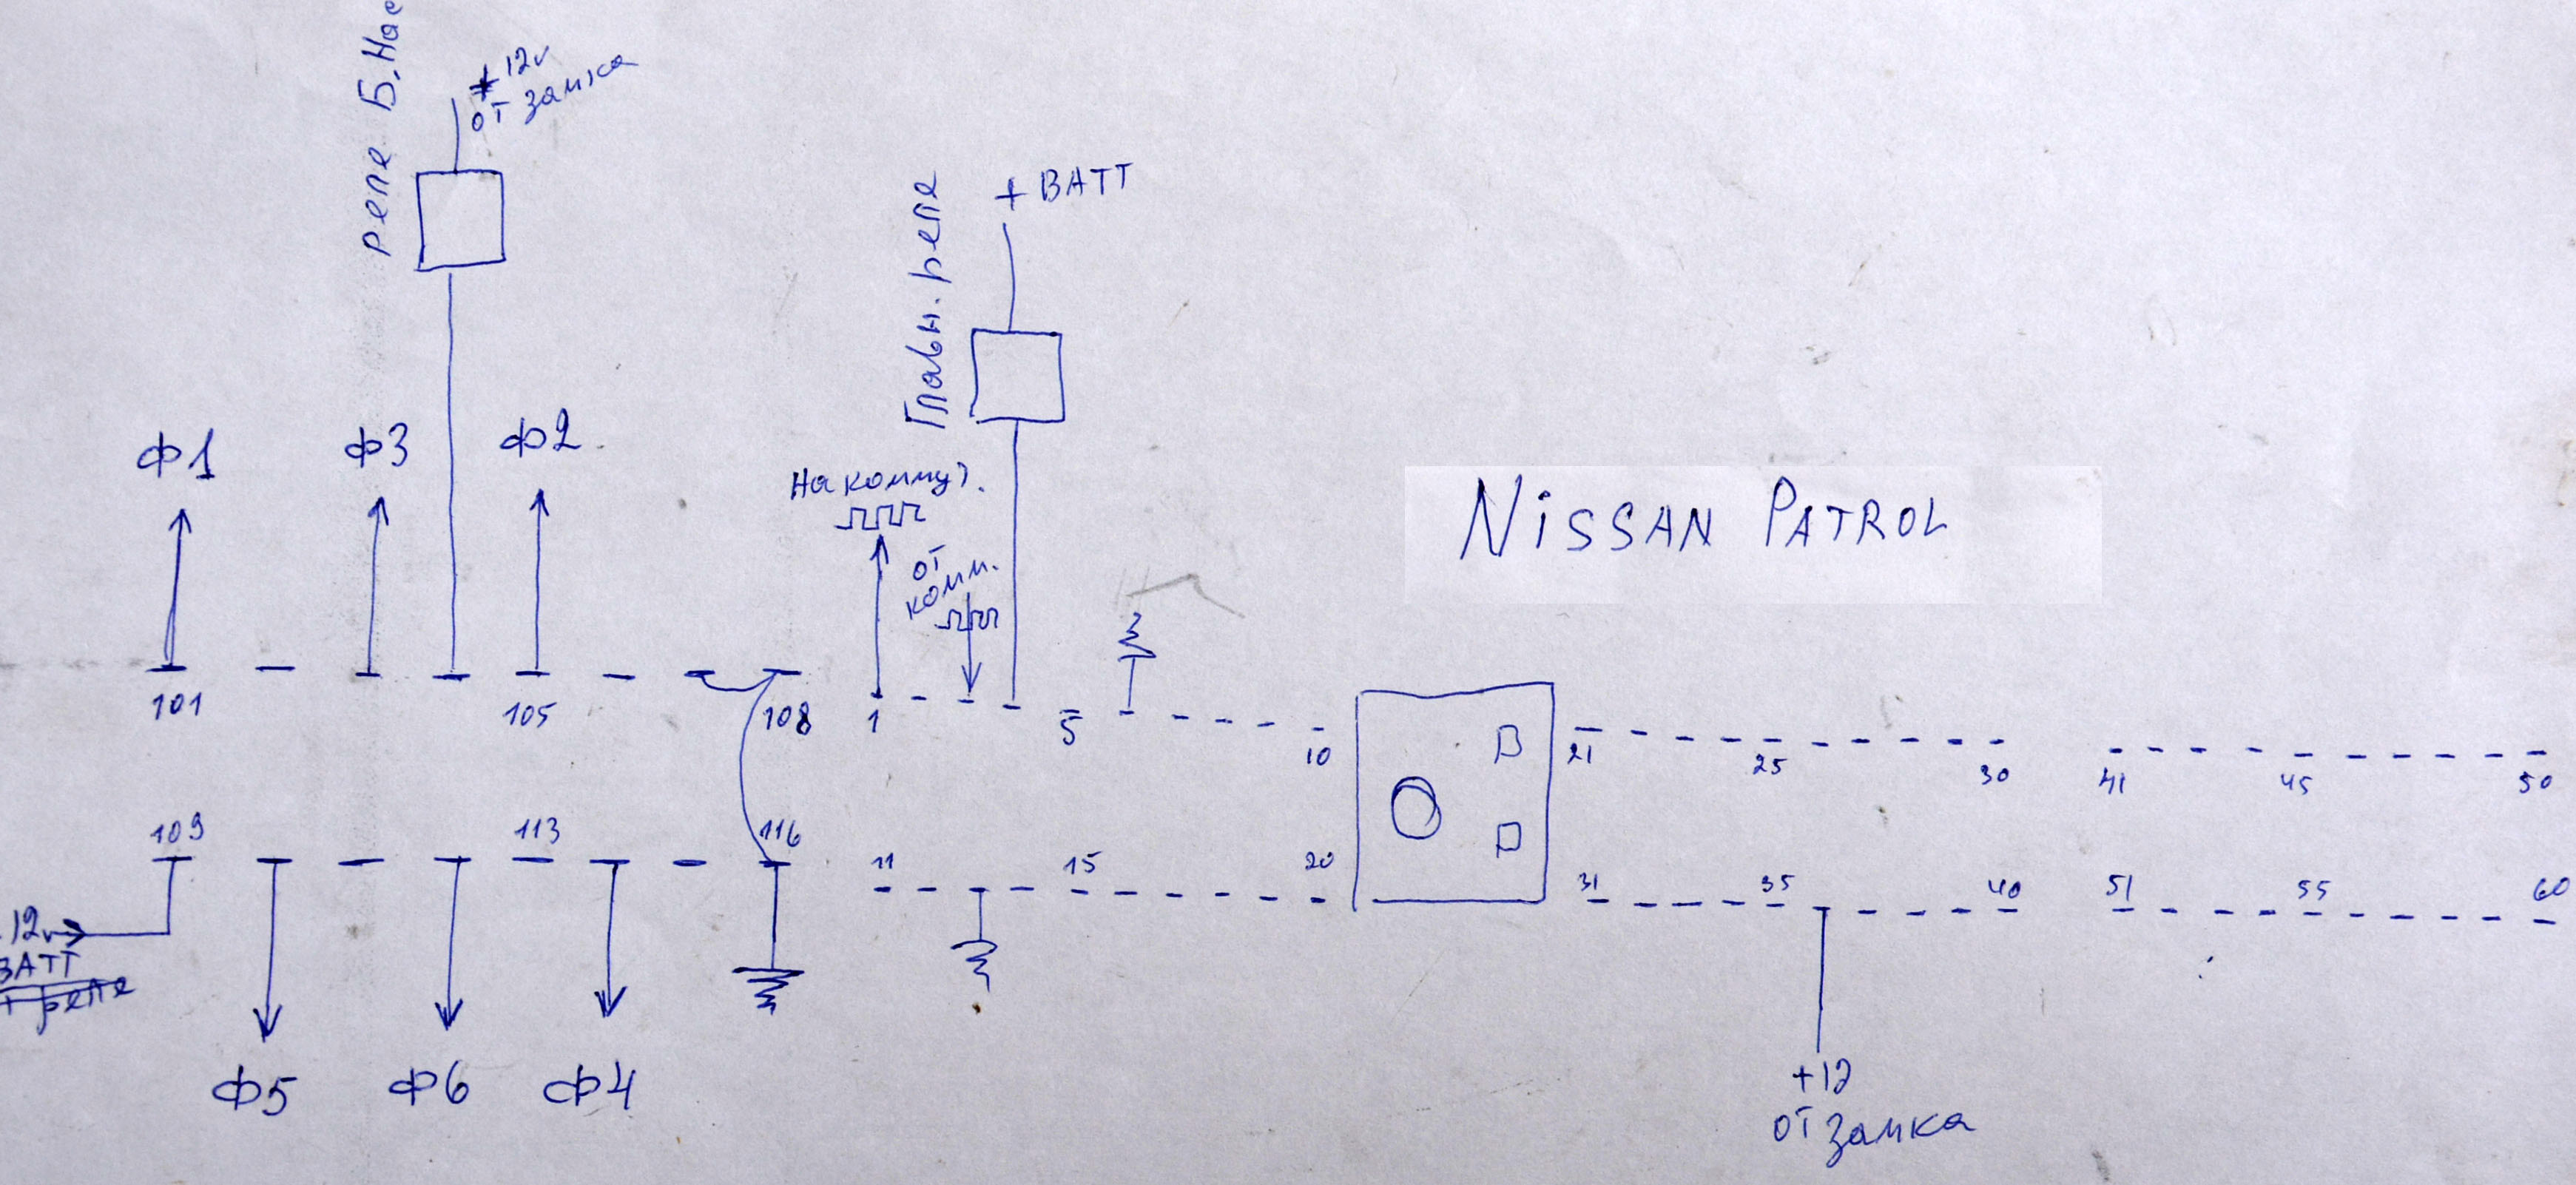 реле Б,Нас
+ 12v
от замка
Главн. реле
+ BATT
Ф1
Ф3
Ф2
На коммут.
от
комм.
NiSSAN PATROL
101
105
108
1
5
10
21
25
30
41
45
50
109
113
116
11
15
20
31
35
40
51
55
60
12v
BATT
+ реле
Ф5
Ф6
Ф4
+12
от замка